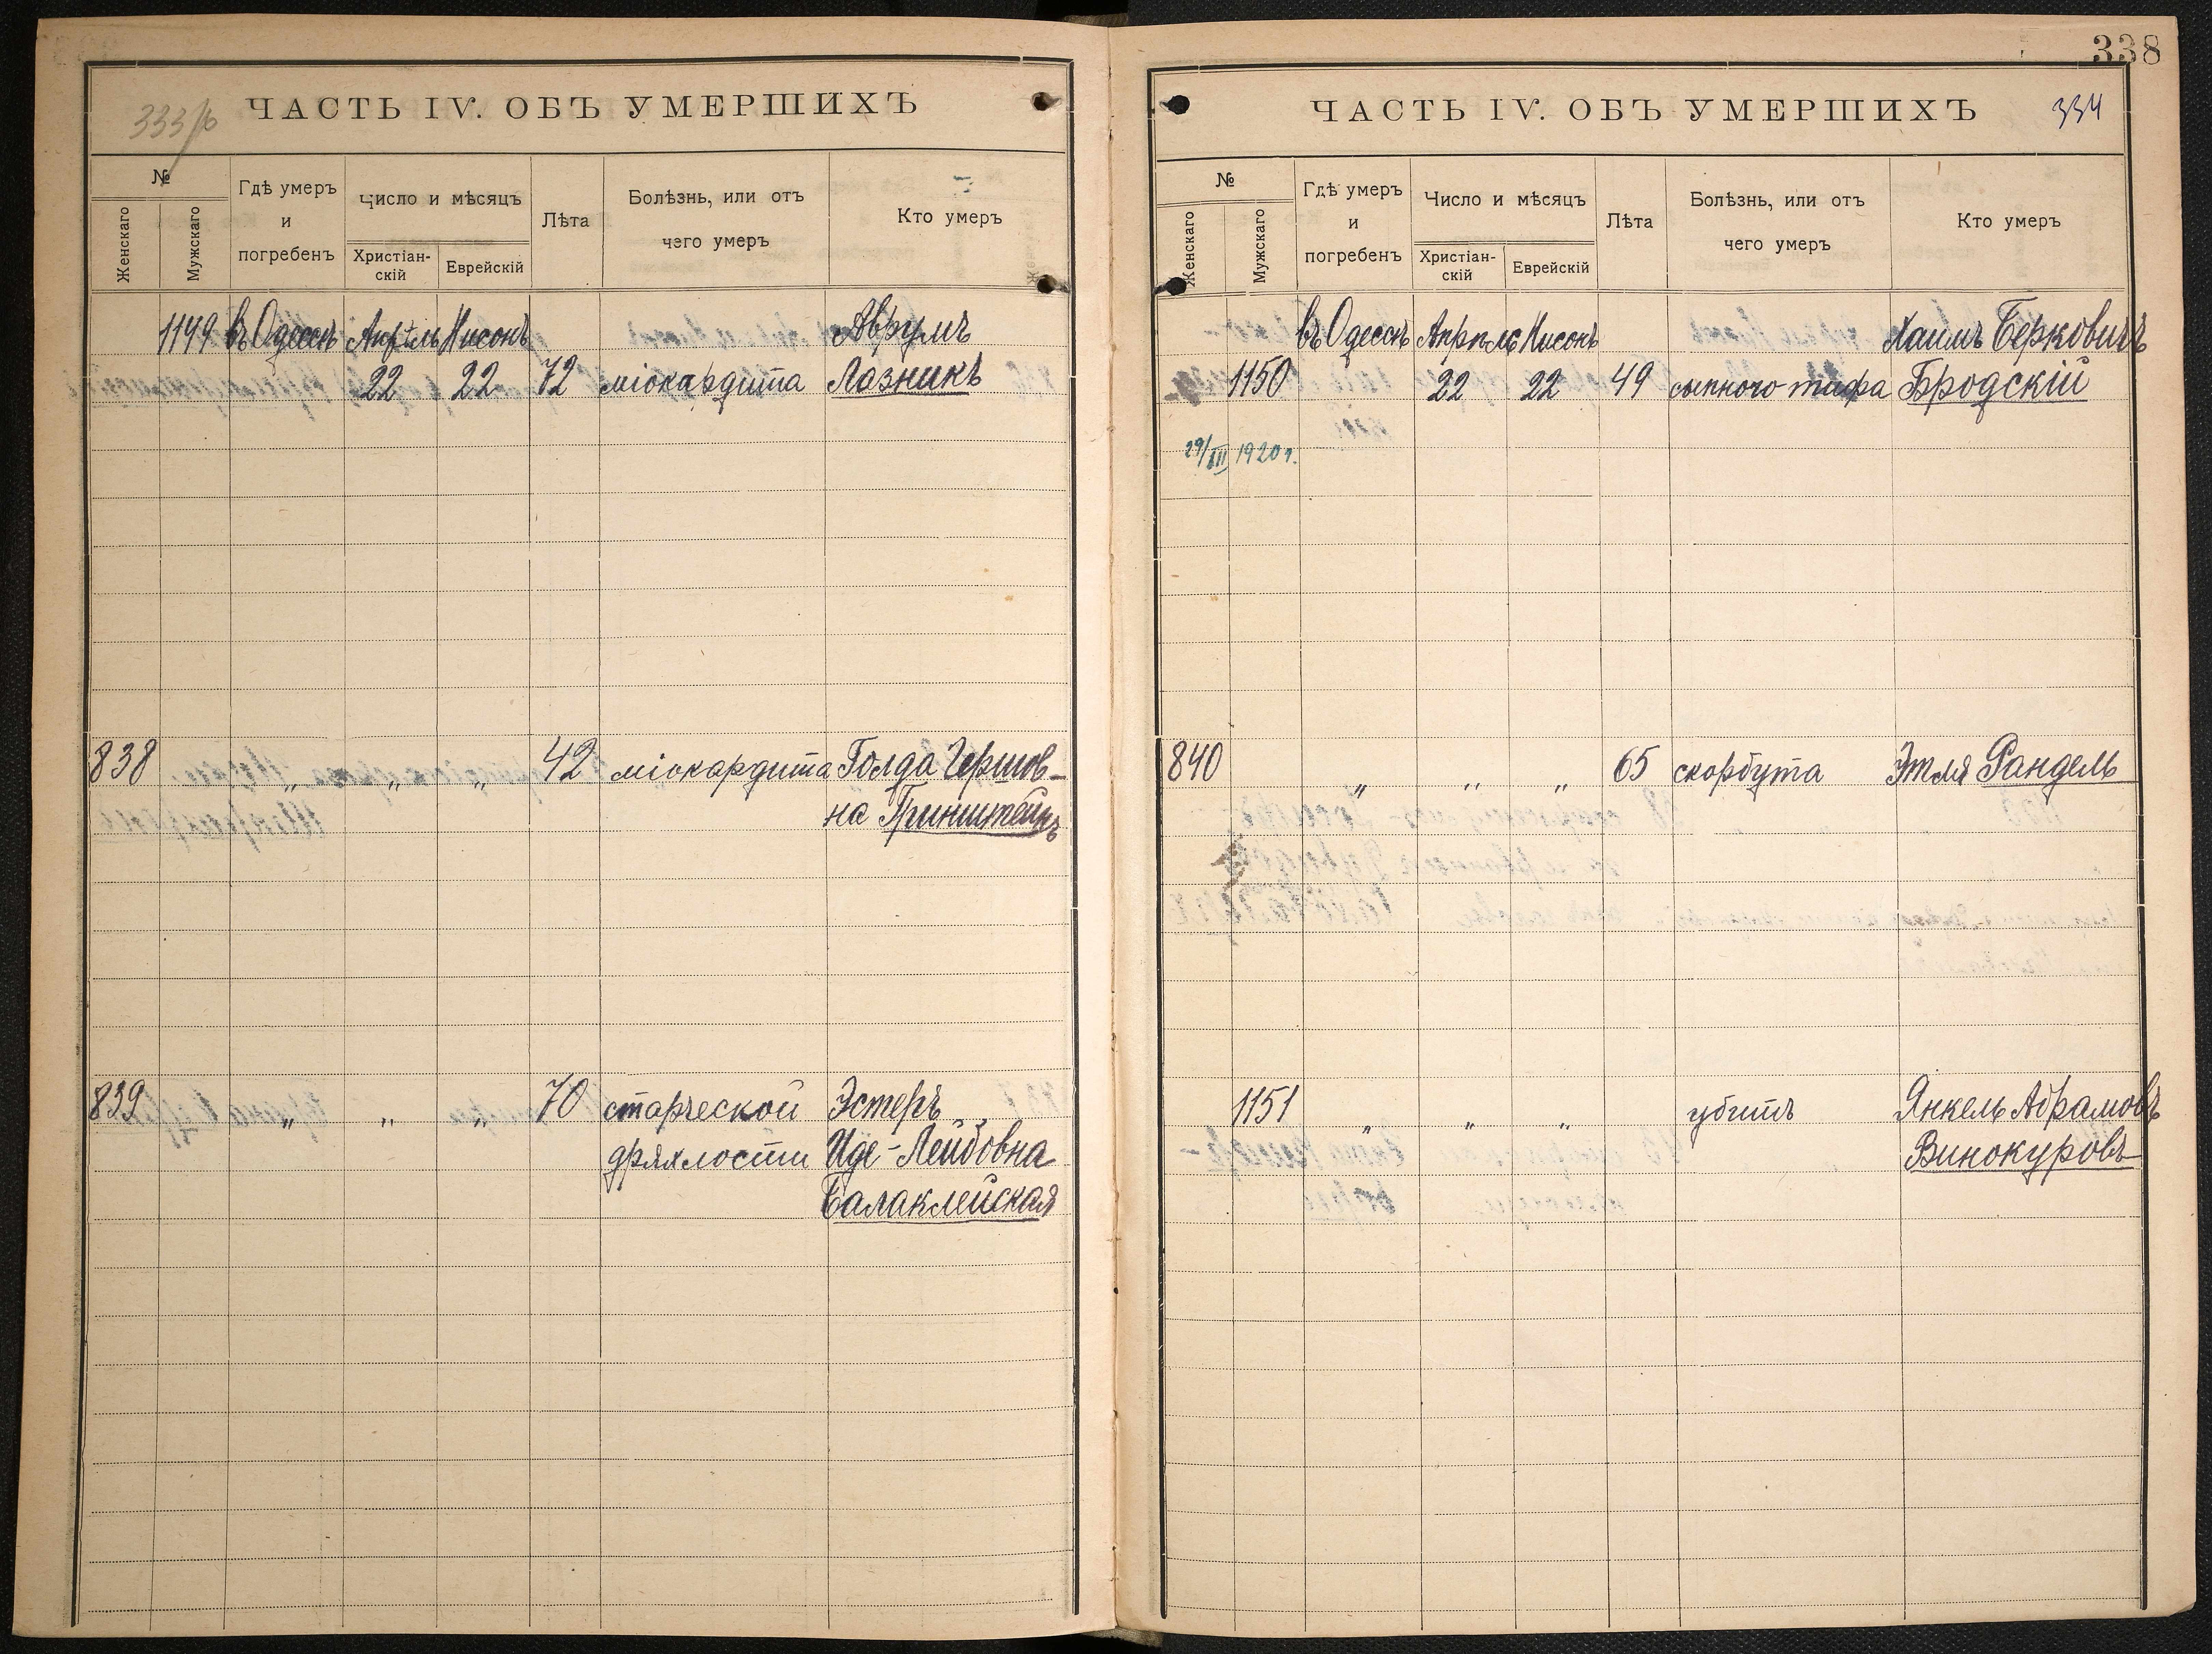 333/б
ЧАСТЬ IV. ОБЪ УМЕРШИХЪ
№
Женскаго
Мужскаго
Гдѣ умеръ
и
погребенъ
Число и мѣсяцъ
Христіан-
скій
Еврейскій
Лѣта
Болѣзнь, или отъ
чего умеръ
Кто умеръ
1149 въ Одессѣ Апрѣль Нисонъ Аврумъ
22 22 72 міокардита Лазникъ
838 „ „ „ 42 міокардита Голда Гершов-
на Гринштейнъ
839 „ „ „ 70 старческой Эстеръ
дряхлости Иде-Лейбовна
Балаклейская
338
ЧАСТЬ IV. ОБЪ УМЕРШИХЪ
334
№
Женскаго
Мужскаго
Гдѣ умеръ
и
погребенъ
Число и мѣсяцъ
Христіан-
скій
Еврейскій
Лѣта
Болѣзнь, или отъ
чего умеръ
Кто умеръ
въ Одессѣ Апрѣль Нисонъ Хаимъ Берковичъ
1150 22 22 49 сыпного тифа Бродскій
29/XII 1920 г.
840 „ „ „ 65 скорбута Этля Рандель
1151 „ „ „ убитъ Янкель Абрамовъ
Винокуровъ